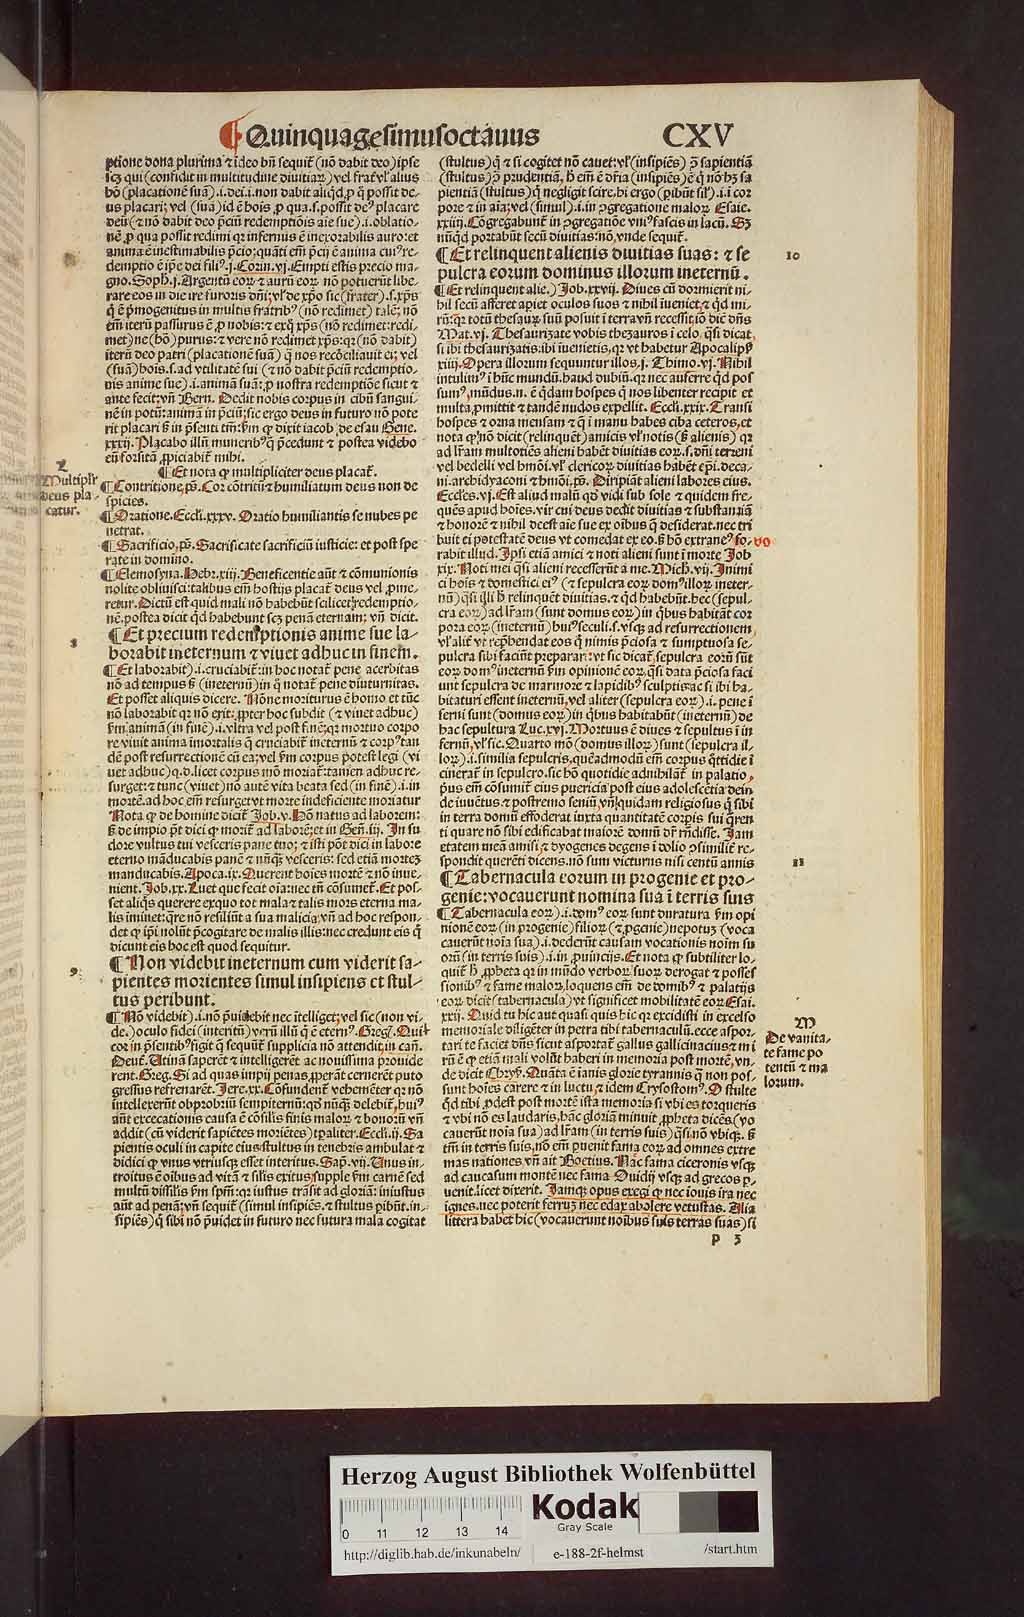 ¶ Quinquagesimusoctauus CXV
ptione dona plurima ⁊ ideo bñ sequit̃ (nõ dabit deo) ipse
scꝫ qui (confidit in multitudine diuitiaꝝ) vel frat̃ vl̃ alius
hõ (placationẽ suã) .i. dei .i. non dabit aliqd̃ ꝓ q̃ possit de-
us placari; vel (suã) id ẽ hois ꝓ qua .s. possit deꝰ placare
deũ (⁊ nõ dabit deo p̃ciũ redemptiõis aĩe sue) .i. oblatio-
nẽ ꝓ qua possit redimi qꝛ infernus ẽ inexorabilis auro: et
anima ẽ inestimabilis p̃cio; quãti em̃ p̃cij ẽ anima cuiꝰ re-
demptio ẽ ip̃e dei filiꝰ .j. Corin. vj. Empti estis precio ma-
gno. Soph. j. Argentũ eoꝝ ⁊ aurũ eoꝝ nõ potuerũt libe-
rare eos in die ire furoris dñi; vl̃ de xp̃o sic (frater) .s. xp̃s
q̃ ẽ p̃mogenitus in multis fratribꝰ (nõ redimet) talẽ; nõ
em̃ iterũ passurus ẽ ꝓ nobis: ⁊ ex q̃ xp̃s (nõ redimet: redi-
met) ne (hõ) purus: ⁊ vere nõ redimet xp̃s: qꝛ (nõ dabit)
iterũ deo patri (placationẽ suã) q̃ nos recõciliauit ei; vel
(suã) hois .s. ad vtilitatẽ sui (⁊ nõ dabit p̃ciũ redemptio-
nis anime sue) .i. animã suã: ꝓ nostra redemptiõe sicut ⁊
ante fecit; vñ Bern. Dedit nobis corpus in cibũ sangui-
nẽ in potũ: animã in p̃ciũ; sic ergo deus in futuro nõ pote
rit placari ß in p̃senti tm̃: ẜm ꝙ dixit iacob de esau Gene.
xxxij. Placabo illũ muneribꝰ q̃ p̃cedunt ⁊ postea videbo
eũ forsitã ꝓpiciabit̃ mihi.
¶ Et nota ꝙ multipliciter deus placat̃.
L
Multipl'r
deus pla-
catur.
¶ Contritione, ps̃. Cor cõtritũ ⁊ humiliatum deus non de
spicies.
¶ Oratione. Eccli. xxxv. Oratio humiliantis se nubes pe
netrat.
¶ Sacrificio, ps̃. Sacrificate sacrificiũ iusticie: et post spe
rate in domino.
¶ Elemosyna. Hebr. xiij. Beneficentie aũt ⁊ cõmunionis
nolite obliuisci: talibus em̃ hostijs placat̃ deus vel ꝓme-
retur. Dictũ est quid mali nõ habebũt scilicet redemptio-
nẽ. postea dicit qd̃ habebunt scꝫ penã eternam; vñ dicit.
8
¶ Et precium redemptionis anime sue la-
borabit ineternum ⁊ viuet adhuc in finem.
¶ Et laborabit) .i. cruciabit̃: in hoc notat̃ pene acerbitas
nõ ad tempus ß (ineternũ) in q̃ notat̃ pene diuturnitas.
Et posset aliquis dicere. Nõne moriturus ẽ homo et tũc
nõ laborabit qꝛ nõ erit: ꝓpter hoc subdit (⁊ viuet adhuc)
ẜm animã (in finẽ) .i. vltra vel post finẽ; qꝛ mortuo corpo
re viuit anima imortalis q̃ cruciabit̃ ineternũ ⁊ corpꝰ tan
dẽ post resurrectionẽ cũ ea; vel ẜm corpus potest legi (vi
uet adhuc) q. d. licet corpus mõ moriat̃: tamen adhuc re-
surget: ⁊ tunc (viuet) nõ autẽ vita beata sed (in finẽ) .i. in
mortẽ. ad hoc em̃ resurget vt morte indeficiente moriatur
Nota ꝙ de homine dicit̃ Job. v. Hõ natus ad laborem:
ß de impio pt̃ dici ꝙ morit̃ ad laborẽ; et in Geñ. iij. In su
dore vultus tui vesceris pane tuo; ⁊ isti põt dici in labore
eterno mãducabis panẽ ⁊ nũq̃ vesceris: sed etiã mortẽ
manducabis. Apoca. ix. Querent hoies mortẽ ⁊ nõ inue-
nient. Job. xx. Luet que fecit oĩa: nec tñ cõsumet̃. Et pos-
set aliq̃s querere ex quo tot mala ⁊ talis mors eterna ma-
lis iminet: q̃re nõ resiliũt a sua malicia; vñ ad hoc respon-
det ꝙ ip̃i nolũt p̃cogitare de malis illis: nec credunt eis q̃
dicunt eis hoc est quod sequitur.
9
¶ Non videbit ineternum cum viderit sa-
pientes morientes simul insipiens et stul-
tus peribunt.
¶ Nõ videbit) .i. nõ p̃uidebit nec ĩtelliget; vel sic (non vi-
de.) oculo fidei (interitũ) verũ illũ q̃ ẽ eternꝰ. Greg. Qui
cor in p̃sentibꝰ figit q̃ sequũt̃ supplicia nõ attendit; in cañ.
Deut̃. Utinã saperẽt ⁊ intelligerẽt ac nouissima prouide
rent. Greg. Si ad quas impij penas ꝓperãt cernerẽt puto
gressus refrenarẽt. Jere. xx. Cõfundent̃ vehemẽter qꝛ nõ
intellexerũt obprobriũ sempiternũ: qd̃ nũq̃ delebit̃; huiꝰ
aũt excecationis causa ẽ cõsilis finis maloꝝ ⁊ bonoꝝ vñ
addit (cũ viderit sapiẽtes moriẽtes) tpaliter. Eccli. ij. Sa
pientis oculi in capite eius: stultus in tenebris ambulat ⁊
didici ꝙ vnus vtriusq̃ esset interitus. Sap̃. vij. Unus in-
troitus ẽ oibus ad vitã ⁊ silis exitus; supple ẜm carnẽ sed
multũ dissilis ẜm spm̃: qꝛ iustus trãsit ad gloriã: iniustus
aũt ad penã; vñ sequit̃ (simul insipiẽs, ⁊ stultus pibũt. in-
sipiẽs) q̃ sibi nõ p̃uidet in futuro nec futura mala cogitat
(stultus) q̃ ⁊ si cogitet nõ cauet: vl̃ (insipiẽs) ꝓ̃ sapientiã
(stultus) ꝓ̃ prudentiã, h̃ em̃ ẽ dr̃ia (insipiẽs) ẽ q̃ nõ hꝫ sa
pientiã (stultus) q̃ negligit scire. hi ergo (pibũt sil̃) .i. ĩ cor
pore ⁊ in aĩa; vel (simul) .i. in ꝯgregatione maloꝝ Esaie.
xxiiij. Cõgregabunt̃ in ꝯgregatiõe vniꝰ fascis in lacũ. Sꝫ
nũqd̃ portabũt secũ diuitias: nõ, vnde sequit̃.
10
¶ Et relinquent alienis diuitias suas: ⁊ se
pulcra eorum dominus illorum ineternũ.
¶ Et relinquent alie.) Job. xxvij. Diues cũ dormierit ni-
hil secũ afferet apiet oculos suos ⁊ nihil ĩueniet; ⁊ qd̃ mi-
rũ: qꝛ totũ thesauꝝ suũ posuit ĩ terra vñ recessit; iõ dic̃ dñs
Mat. vj. Thesaurizate vobis thezauros i celo. q̃si dicat,
si ibi thesaurizatis. ibi ĩuenietis, qꝛ vt habetur Apocalips̃
xiiij. Opera illorum sequuntur illos. j. Thimo. vj. Nihil
intulimꝰ ĩ hũc mundũ. haud dubiũ. qꝛ nec auferre qd̃ pos
sumꝰ, mũdus. n. ẽ q̃dam hospes q̃ nos libenter recipit et
multa ꝓmittit ⁊ tandẽ nudos expellit. Eccli. xxix. Transi
hospes ⁊ orna mensam ⁊ q̃ ĩ manu habes ciba ceteros, et
nota ꝙ nõ dicit (relinquẽt) amicis vl̃ notis (ß alienis) qꝛ
ad lr̃am multotiẽs alieni habẽt diuitias eoꝝ .s. dñi terreni
vel bedelli vel hmõi. vl̃ clericoꝝ diuitias habẽt ep̃i. deca-
ni. archidyaconi ⁊ hmõi, ps̃. Diripiãt alieni labores eius.
Eccles. vj. Est aliud malũ qd̃ vidi sub sole ⁊ quidem fre-
quẽs apud hoies. vir cui deus dedit diuitias ⁊ substantiã
⁊ honorẽ ⁊ nihil deest aĩe sue ex oibus q̃ desiderat. nec tri
buit ei potestatẽ deus vt comedat ex eo. ß hõ extraneꝰ vo-
rabit illud. Ipsi etiã amici ⁊ noti alieni sunt ĩ morte Job
xix. Noti mei q̃si alieni recesserũt a me. Mich. vij. Inimi
ci hois ⁊ domestici eiꝰ (⁊ sepulcra eoꝝ domꝰ illoꝝ ineter-
nũ) q̃si illi h̃ relinquẽt diuitias. ⁊ qd̃ habebũt. hec (sepul-
cra eoꝝ) ad lr̃am (sunt domus eoꝝ) in q̃bus habitãt cor
pora eoꝝ (ineternũ) huiꝰ seculi .s. vsq̃ ad resurrectionem,
vl̃ alit̃ vt rep̃hendat eos q̃ nimis p̃ciosa ⁊ sumptuosa se-
pulcra sibi faciũt preparari: vt sic dicat̃, sepulcra eorũ sũt
eoꝝ domꝰ ineternũ ẜm opinionẽ eoꝝ. q̃si data p̃ciosa faci
unt sepulcra de marmore ⁊ lapidibꝰ sculptis: ac si ibi ha-
bitaturi essent ineternũ, vel aliter (sepulcra eoꝝ) .i. pene ĩ
ferni sunt (domus eoꝝ) in q̃bus habitabũt (ineternũ) de
hac sepultura Luc. xvj. Mortuus ẽ diues ⁊ sepultus ĩ in
fernũ, vl̃ sic. Quarto mõ (domus illoꝝ) sunt (sepulcra il-
loꝝ) .i. similia sepulcris, quẽadmodũ em̃ corpus q̃ttidie ĩ
cinerat̃ in sepulcro. sic hõ quotidie adnihilat̃ in palatio,
p̃us em̃ cõsumit̃ eius puericia post eius adolescẽtia dein
de iuuẽtus ⁊ postremo seniũ, vñ quidam religiosus q̃ sibi
in terra domũ effoderat iuxta quantitatẽ corpis sui q̃ren
ti quare nõ sibi edificabat maiorẽ domũ dr̃ rñdisse. Jam
etatem meã amisi, ⁊ dyogenes degens ĩ dolio ꝯsimilit̃ re-
spondit querẽti dicens. nõ sum victurus nisi centũ annis
11
¶ Tabernacula eorum in progenie et pro-
genie: vocauerunt nomina sua ĩ terris suis
¶ Tabernacula eoꝝ) .i. domꝰ eoꝝ sunt duratura ẜm opi
nionẽ eoꝝ (in progenie) filioꝝ (⁊ ꝓgenie) nepotuꝫ (voca
cauerũt noĩa sua) .i. dederũt causam vocationis noĩm su
orũ (in terris suis) .i. in ꝓuincijs. Et nota ꝙ subtiliter lo-
quit̃ h̃ ꝓpheta qꝛ in mũdo verboꝝ suoꝝ derogat ⁊ posses
sionibꝰ ⁊ fame maloꝝ, loquens em̃ de domibꝰ ⁊ palatijs
eoꝝ dicit (tabernacula) vt significet mobilitatẽ eoꝝ Esai.
xxij. Quid tu hic aut quasi quis hic qꝛ excidisti in excelso
memoriale diligẽter in petra tibi tabernaculũ. ecce aspor-
tari te faciet dñs sicut asportat̃ gallus gallicinacius ⁊ mi
rũ ẽ ꝙ etiã mali volũt haberi in memoria post mortẽ, vn-
de dicit Chryß. Quãta ẽ ianis glorie tyrannis q̃ non pos-
sunt hoies carere ⁊ in luctu, ⁊ idem Crysostomꝰ. O stulte
qd̃ tibi ꝓdest post mortẽ ista memoria si vbi es torqueris
⁊ vbi nõ es laudaris. hãc gloriã minuit ꝓpheta dicẽs (vo
cauerũt noĩa sua) ad lr̃am (in terris suis) q̃si nõ vbiq̃. ß
tm̃ in terris suis, nõ em̃ puenit fama eoꝝ ad omnes extre
mas nationes vñ ait Boetius. Nãc fama ciceronis vsq̃
ad caucasum montẽ nec fama Ouidij vsq̃ ad grecos p-
uenit. licet dixerit. Jamq̃ opus exegi ꝙ nec iouis ira nec
ignes. nec poterit ferruꝫ nec edax abolere vetustas. Alia
littera habet hic (vocauerunt noĩbus suis terras suas) si
vo
M
De vanita-
te fame po
tentũ ⁊ ma
lorum.
p 3
Herzog August Bibliothek Wolfenbüttel
Kodak
Gray Scale
0 11 12 13 14
http://diglib.hab.de/inkunabeln/ e-188-2f-helmst /start.htm